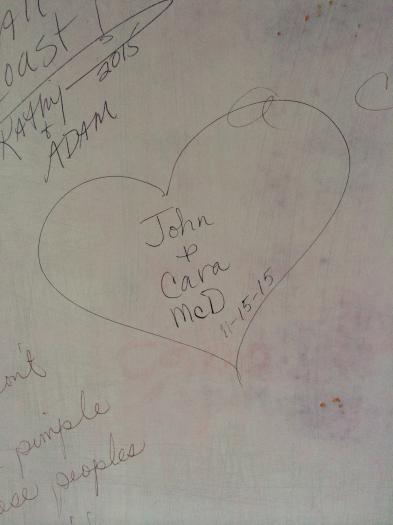 oast!
Kathy 2015
+
ADAM
John
+
Cara
McD
11-15-15
pimple
peoples